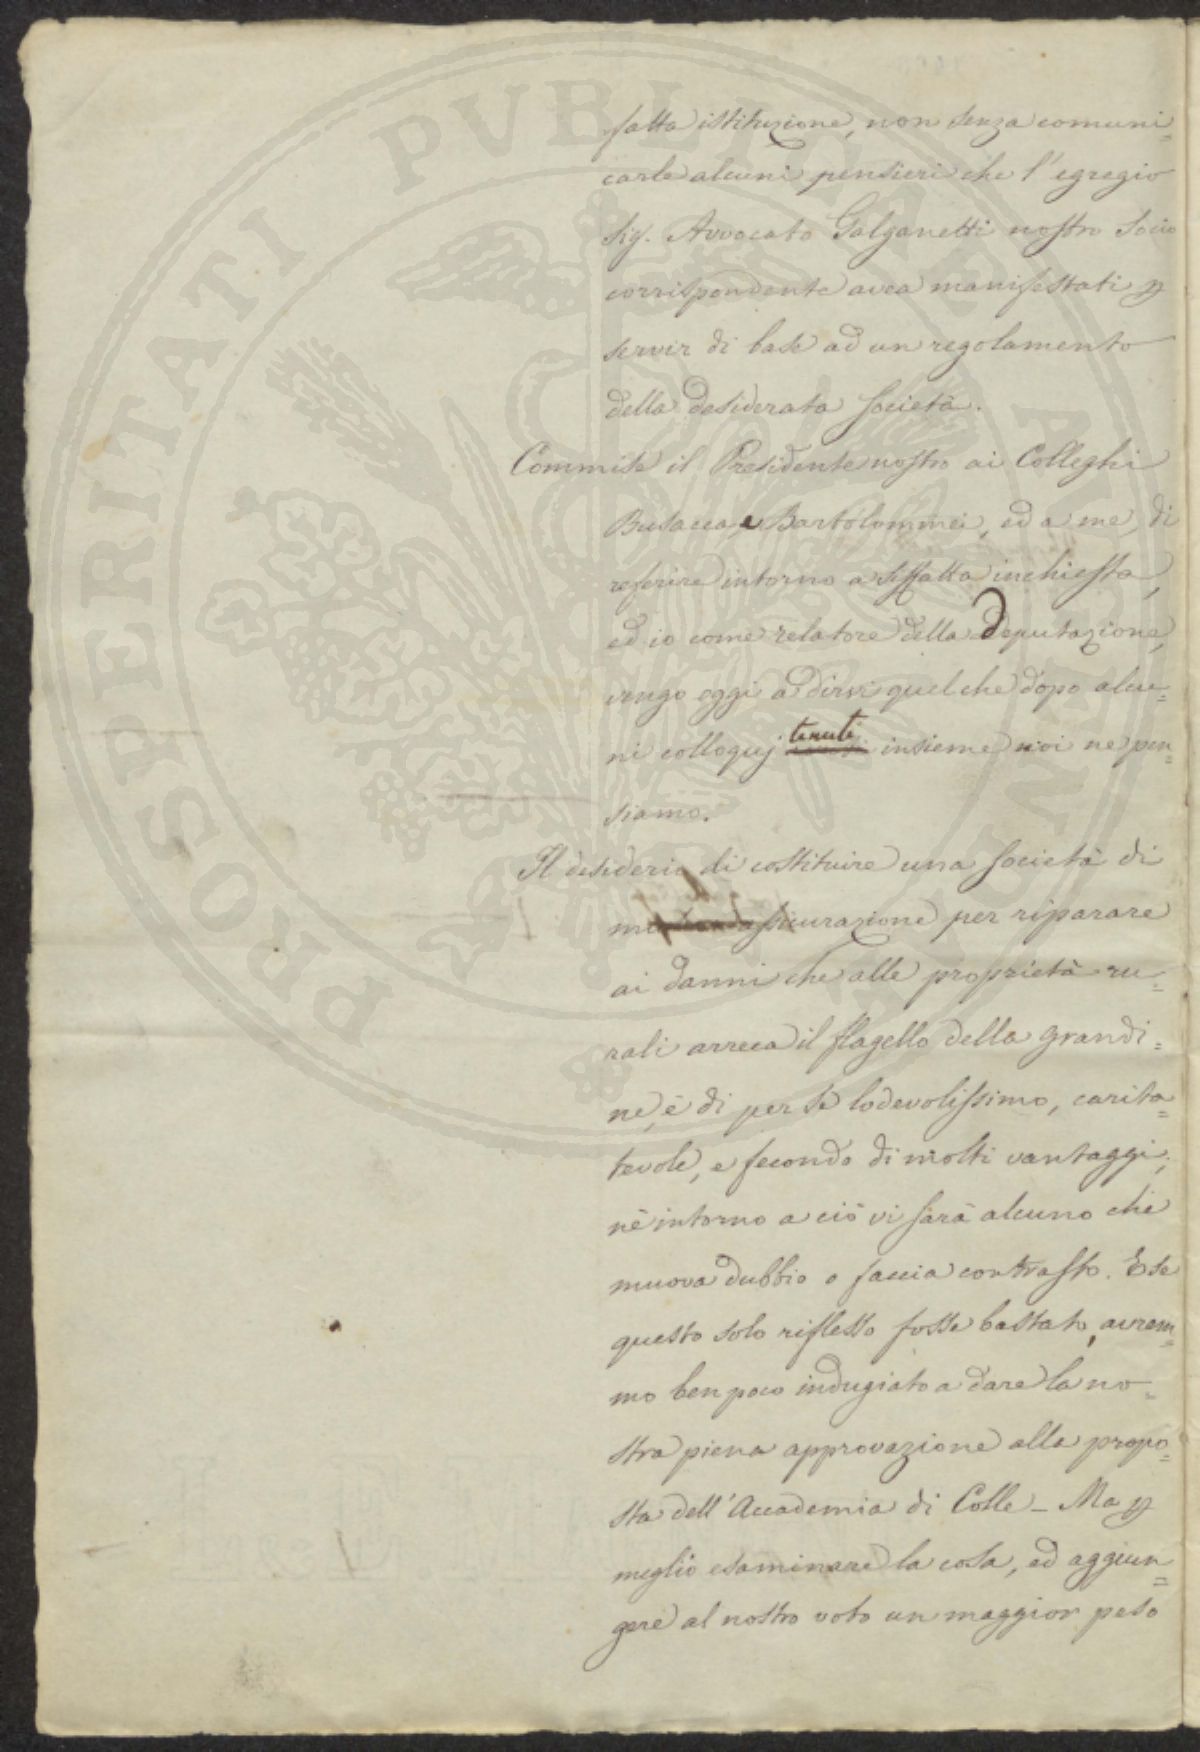 fatta istituzione, non senza comuni=
carle alcuni pensieri che l'egregio
Sig. Avvocato Galganetti nostro Socio
corrispondente avea manifestati p
servir di base ad un regolamento
della desiderata Società.
Commise il Presidente nostro ai Colleghi
Busacca e Bartolommei, ed a me, di
referire intorno a siffatta inchiesta,
ed io come relatore della Deputazione,
vengo oggi a dirvi quel che dopo alcu=
ni colloquj tenuti insieme noi ne pen=
siamo.
Il desiderio di costituire una Società di
assicurazione per riparare
ai danni che alle proprietà ru=
rali arreca il flagello della grandi=
ne, è di per se lodevolissimo, carita=
tevole, e fecondo di molti vantaggi;
nè intorno a ciò vi sarà alcuno che
muova dubbio o faccia contrasto. E se
questo solo riflesso fosse bastato, avrem=
mo ben poco indugiato a dare la no=
stra piena approvazione alla propo=
sta dell'Accademia di Colle_ Ma p
meglio esaminare la cosa, ed aggiun=
gere al nostro voto un maggior peso
PROSPERITATI PVBLICAE AVGENDAE